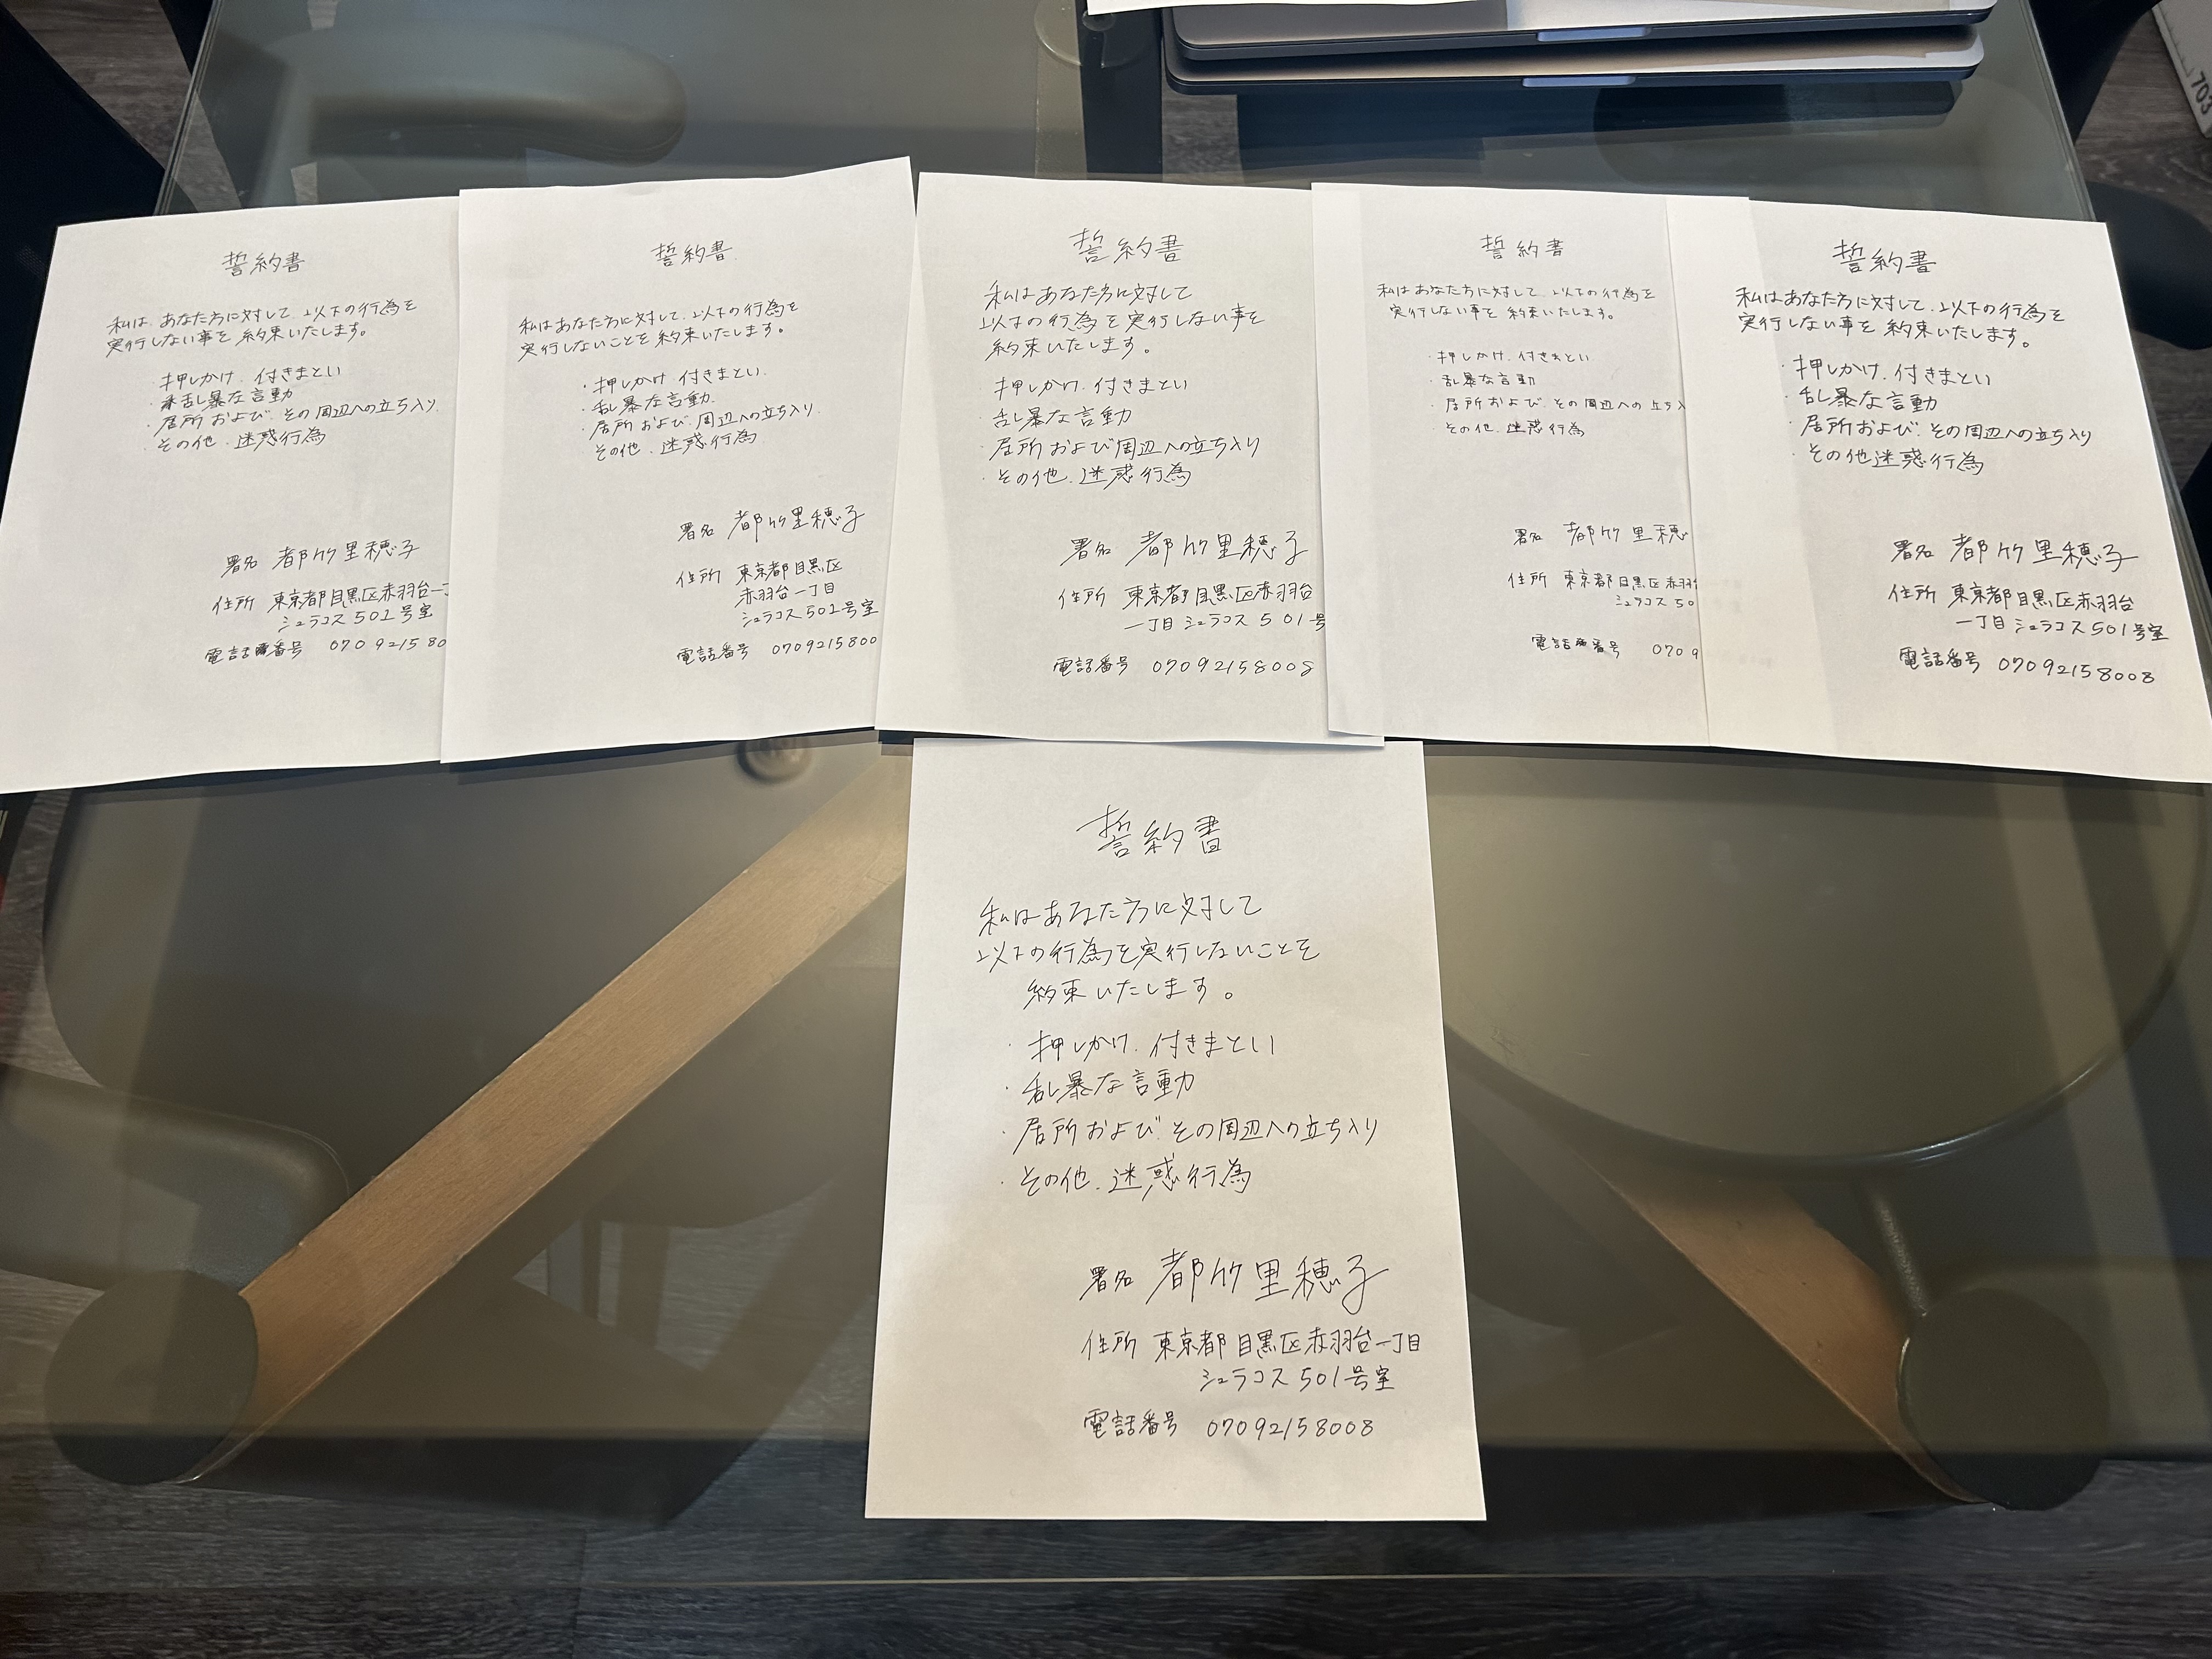 誓約書
私は、あなた方に対して、以下の行為を
実行しない事を約束いたします。
・押しかけ、付きまとい
・乱暴な言動
・居所および、その周辺への立ち入り
・その他、迷惑行為
署名 都竹里穂子
住所 東京都目黒区赤羽台一丁
シュラコス501号室
電話番号 070 9215 80
誓約書
私はあなた方に対して、以下の行為を
実行しないことを約束いたします。
・押しかけ、付きまとい
・乱暴な言動
・居所および、周辺への立ち入り
・その他、迷惑行為
署名 都竹里穂子
住所 東京都目黒区
赤羽台一丁目
シュラコス501号室
電話番号 070 9215800
誓約書
私はあなた方に対して
以下の行為を実行しない事を
約束いたします。
・押しかけ、付きまとい
・乱暴な言動
・居所および周辺への立ち入り
・その他、迷惑行為
署名 都竹里穂子
住所 東京都目黒区赤羽台
一丁目シュラコス501号
電話番号 07092158008
誓約書
私はあなた方に対して、以下の行為を
実行しない事を約束いたします。
・押しかけ、付きまとい
・乱暴な言動
・居所および、その周辺への立ち入
・その他、迷惑行為
署名 都竹里穂
住所 東京都目黒区赤羽
シュラコス50
電話番号 0709
誓約書
私はあなた方に対して、以下の行為を
実行しない事を約束いたします。
・押しかけ、付きまとい
・乱暴な言動
・居所および、その周辺への立ち入り
・その他迷惑行為
署名 都竹里穂子
住所 東京都目黒区赤羽台
一丁目シュラコス501号室
電話番号 07092158008
誓約書
私はあなた方に対して
以下の行為を実行しないことを
約束いたします。
・押しかけ、付きまとい
・乱暴な言動
・居所および、その周辺への立ち入り
・その他、迷惑行為
署名 都竹里穂子
住所 東京都目黒区赤羽台一丁目
シュラコス501号室
電話番号 07092158008
703